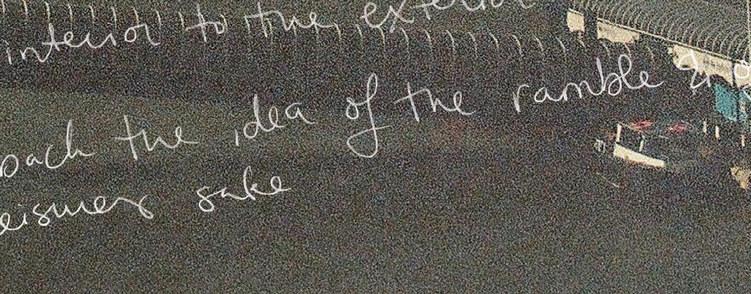 interior to the exterior
back the idea of the ramble &
leisures sake